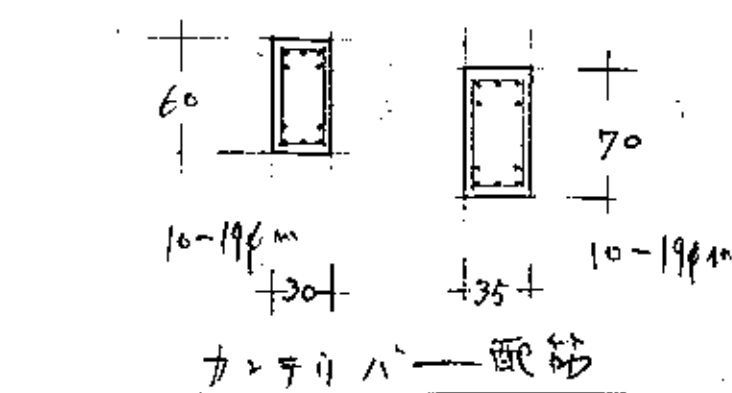 60
70
10-19φ
10-19φ
30
35
カンテリバー配筋